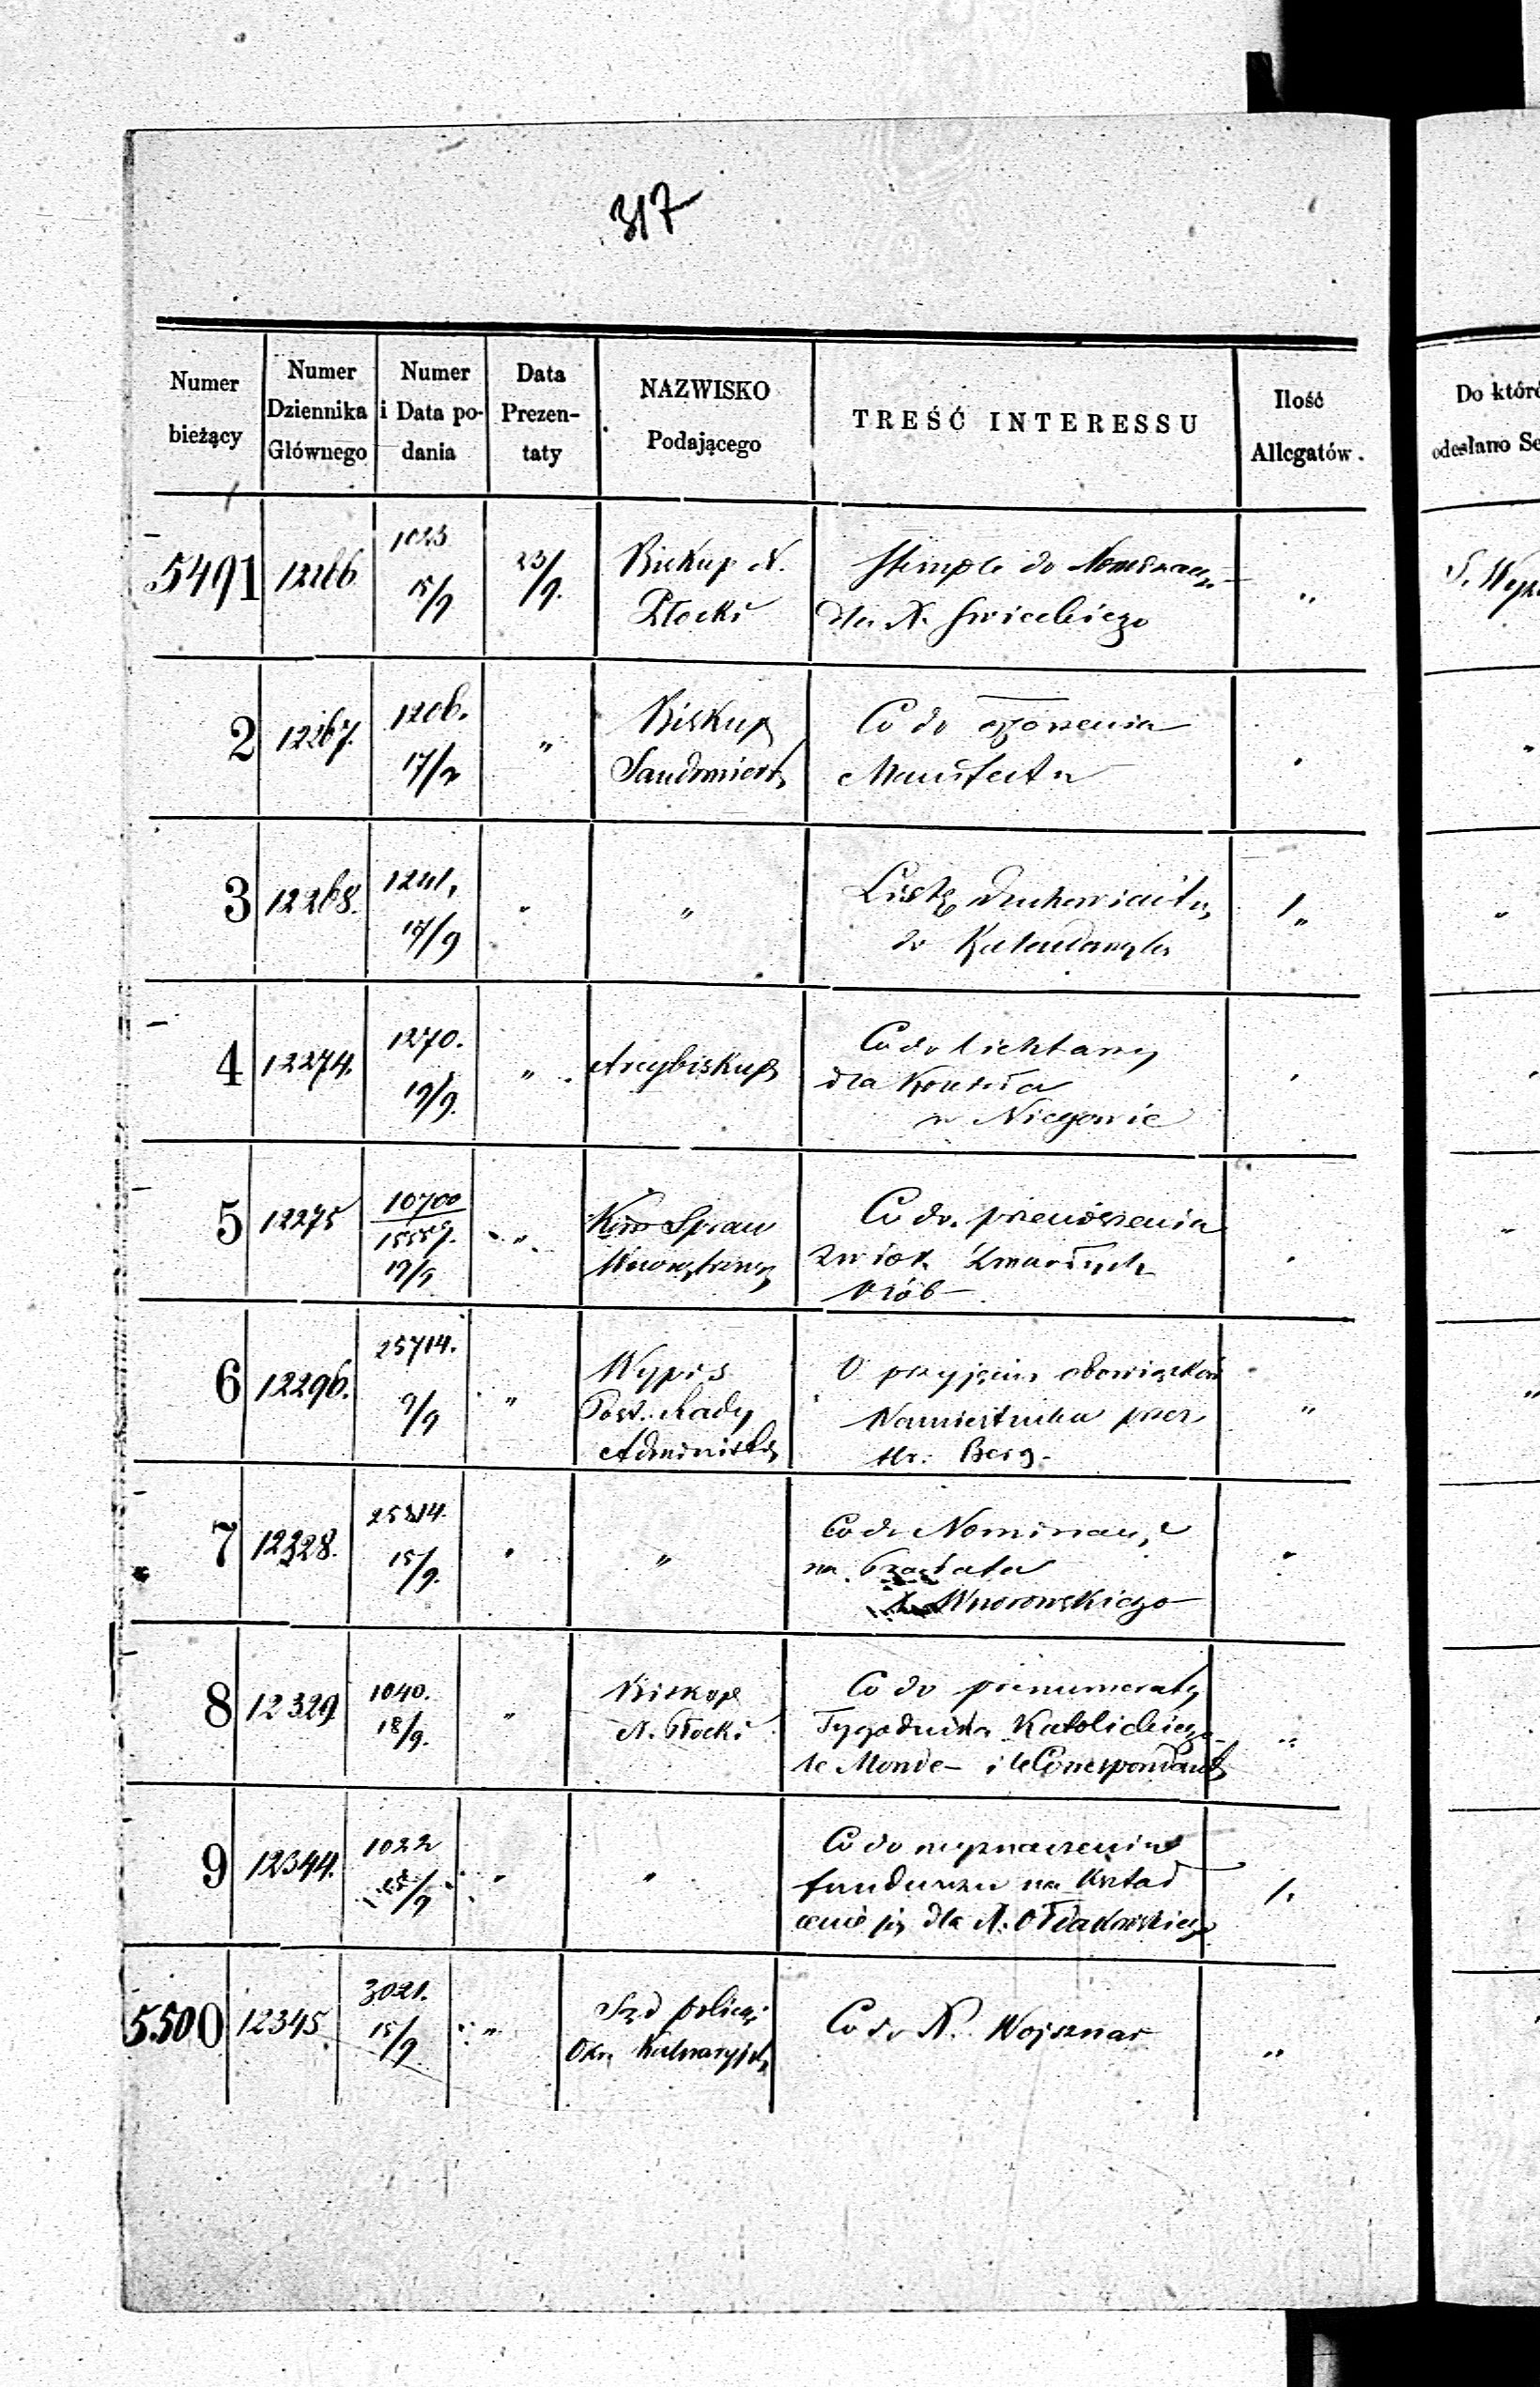 317
Numer bieżący
Numer Dziennika Głównego
Numer i Data podania
Data Prezentaty
NAZWISKO Podającego
TREŚĆ INTERESSU
Ilość Allegatów.
Do któr
odesłano Se
5491 12266 1023 15/9 23/9. Biskup N. Płocki
Stemple do
dla X.
„
S. Wyz
2 12267. 1206. 17/9 „ Biskup
Sandomiersk
Co do ogłoszenia
Manifestu
3 12268. 1241, 17/9 „ „
Listę Duchowieństw
do
1„
4 12274. 1270. 19/9. „ Arcybiskup
Co do
dla Kościoła
w Niegowie
5 12275 10700 15559. 19/9 „ Kom Spraw
Wewnętrzny
Co do przeniesienia
zwłok Zmarłych
Osób
6 12296. 25714. 9/9 „ Wypis
Post. Rady
Administr
O przyjęciu obowiązków
Namiestnika przez
Hr. Berg.
„
7 12328. 25814. 15/9. „ „
Co do Nominacyi
na Prałata
X. Wnorowskiego
„
8 12329 1040. 18/9. „ Biskup
N. Płocki
Co do prenumeraty
Tygodnika Katolickiego
le Monde – i le Correspondant
„
9 12344. 1022 /9 „ „
Co do wyznaczenia
funduszu na Kształ
cenie się dla X.
1.
5.500 12345 3021. 15/9 „ Sąd policyi
Okr. Kalwaryjsk
Co do X. Wojsznar
„